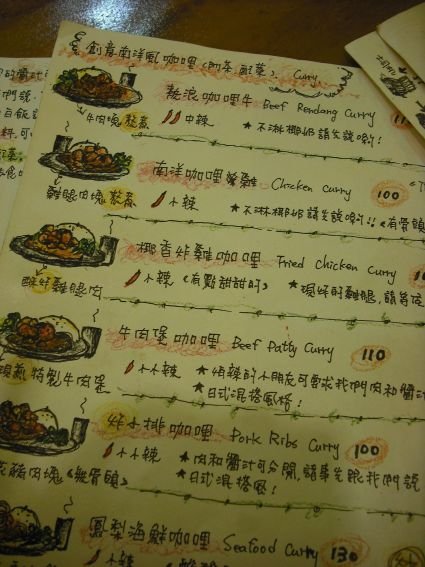 創意南洋風咖哩(附茶 配菜) Curry
熬浪咖哩牛 Beef Rendang Curry
牛肉塊熬煮 中辣 ★不淋椰奶請先說喲!
南洋咖哩雞 Chicken Curry 100
雞腿肉塊熬煮 小辣 ★不淋椰奶請先說喲!! (有骨頭
椰香炸雞咖哩 Fried Chicken Curry
酥炸雞腿肉 小辣 (有點甜甜的) ★現炸的雞腿,請等
牛肉堡咖哩 Beef Patty Curry 110
特製牛肉堡 小小辣 ★怕辣的小朋友可要求我們肉和醬汁
★日式混搭風格!
炸小排咖哩 Pork Ribs Curry 100
豬肉塊(無骨頭) 小小辣 ★肉和醬汁可分開,請事先跟我們說
★日式混搭風!
鳳梨海鮮咖哩 Seafood Curry 130
小辣